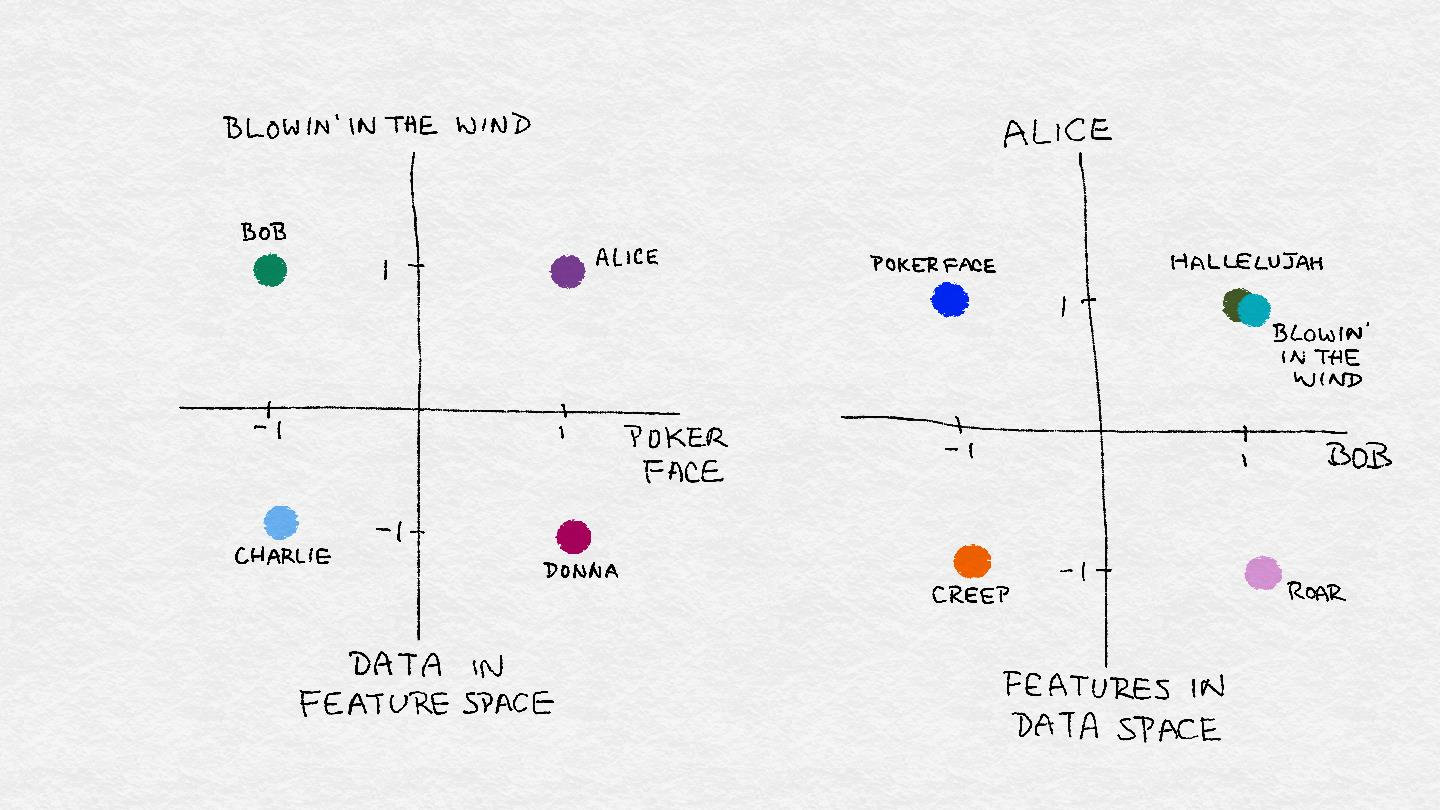 BLOWIN' IN THE WIND
BOB
1
ALICE
-1
1
POKER
FACE
-1
CHARLIE
DONNA
DATA IN
FEATURE SPACE
ALICE
POKER FACE
1
HALLELUJAH
BLOWIN'
IN THE
WIND
-1
1
BOB
-1
CREEP
ROAR
FEATURES IN
DATA SPACE